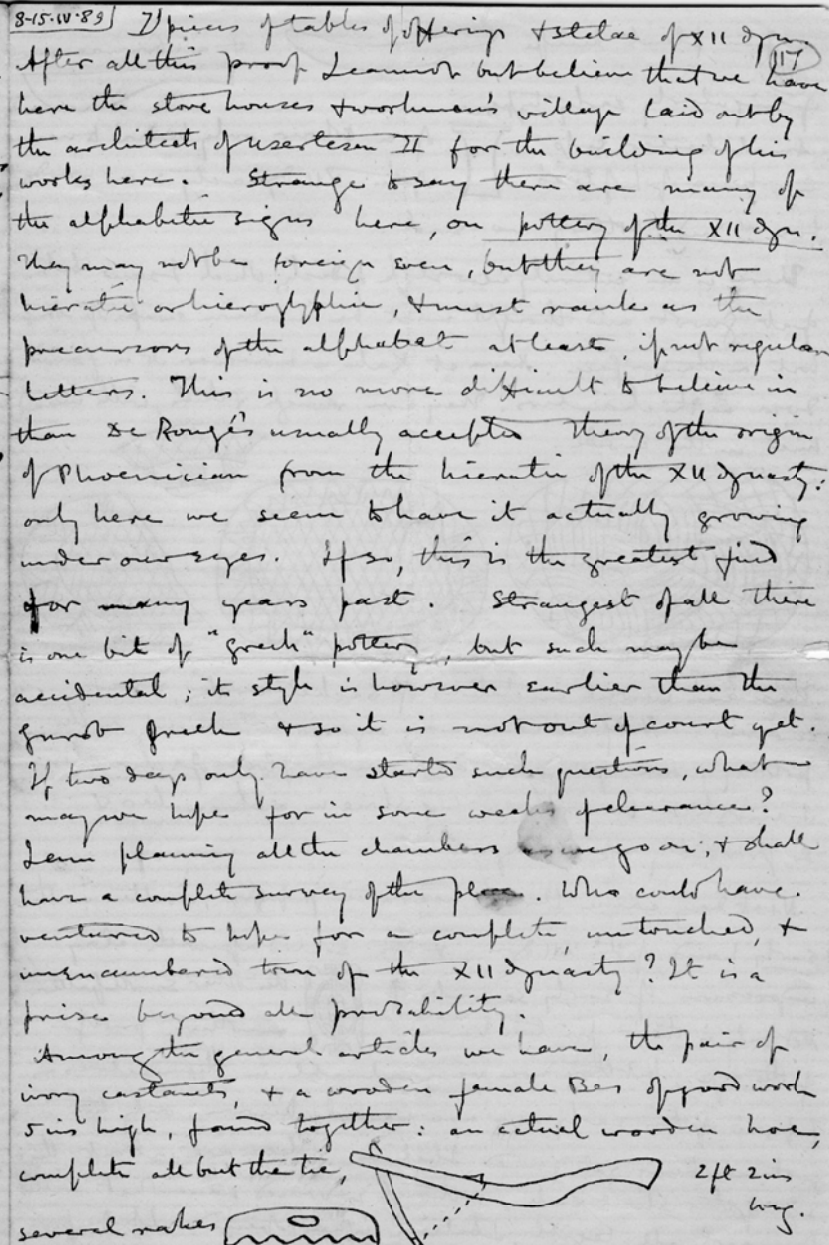 8-15.IV.89
7) pieces of tables of offerings & stelae of XII dyn.
117
After all this proof I cannot but believe that we have
here the store houses & workmen's village laid out by
the architects of Usertesen II for the building of his
works here. Strange to say there are many of
the alphabetic signs here, on pottery of the XII dyn.
They may not be foreign even, but they are not
hieratic or hieroglyphic, & must rank as the
precursors of the alphabet at least, if not regular
letters. This is no more difficult to believe in
than De Rougé's usually accepted theory of the origin
of Phoenician from the hieratic of the XII dynasty:
only here we seem to have it actually growing
under our eyes. If so, this is the greatest find
for many years past. Strangest of all there
is one bit of "greek" pottery, but such may be
accidental; its style is however earlier than the
Gurob greek & so it is not out of court yet.
If two days only have started such questions, what
may we hope for in some weeks of clearance?
I am planning all the chambers as we go on, & shall
have a complete survey of the place. Who could have
ventured to hope for a complete, untouched, &
unencumbered town of the XII dynasty? It is a
prize beyond all probability.
Among the general articles we have, the pair of
ivory castanets, & a wooden female Bes of good work
5 ins high, found together: an actual wooden hoe,
complete all but the tie, 2ft 2ins
long.
several rakes